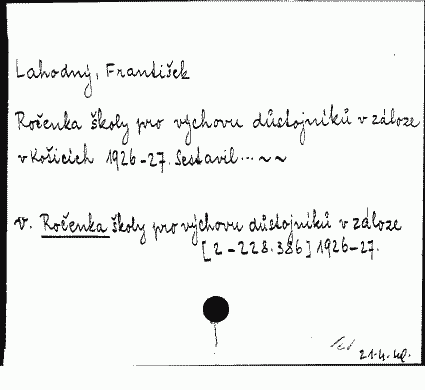 Lahodný, František
Ročenka školy pro výchovu důstojníků v záloze
v Košicích 1926-27. Sestavil...~~
v. Ročenka školy pro výchovu důstojníků v záloze
[2-228.386] 1926-27.
21.4.